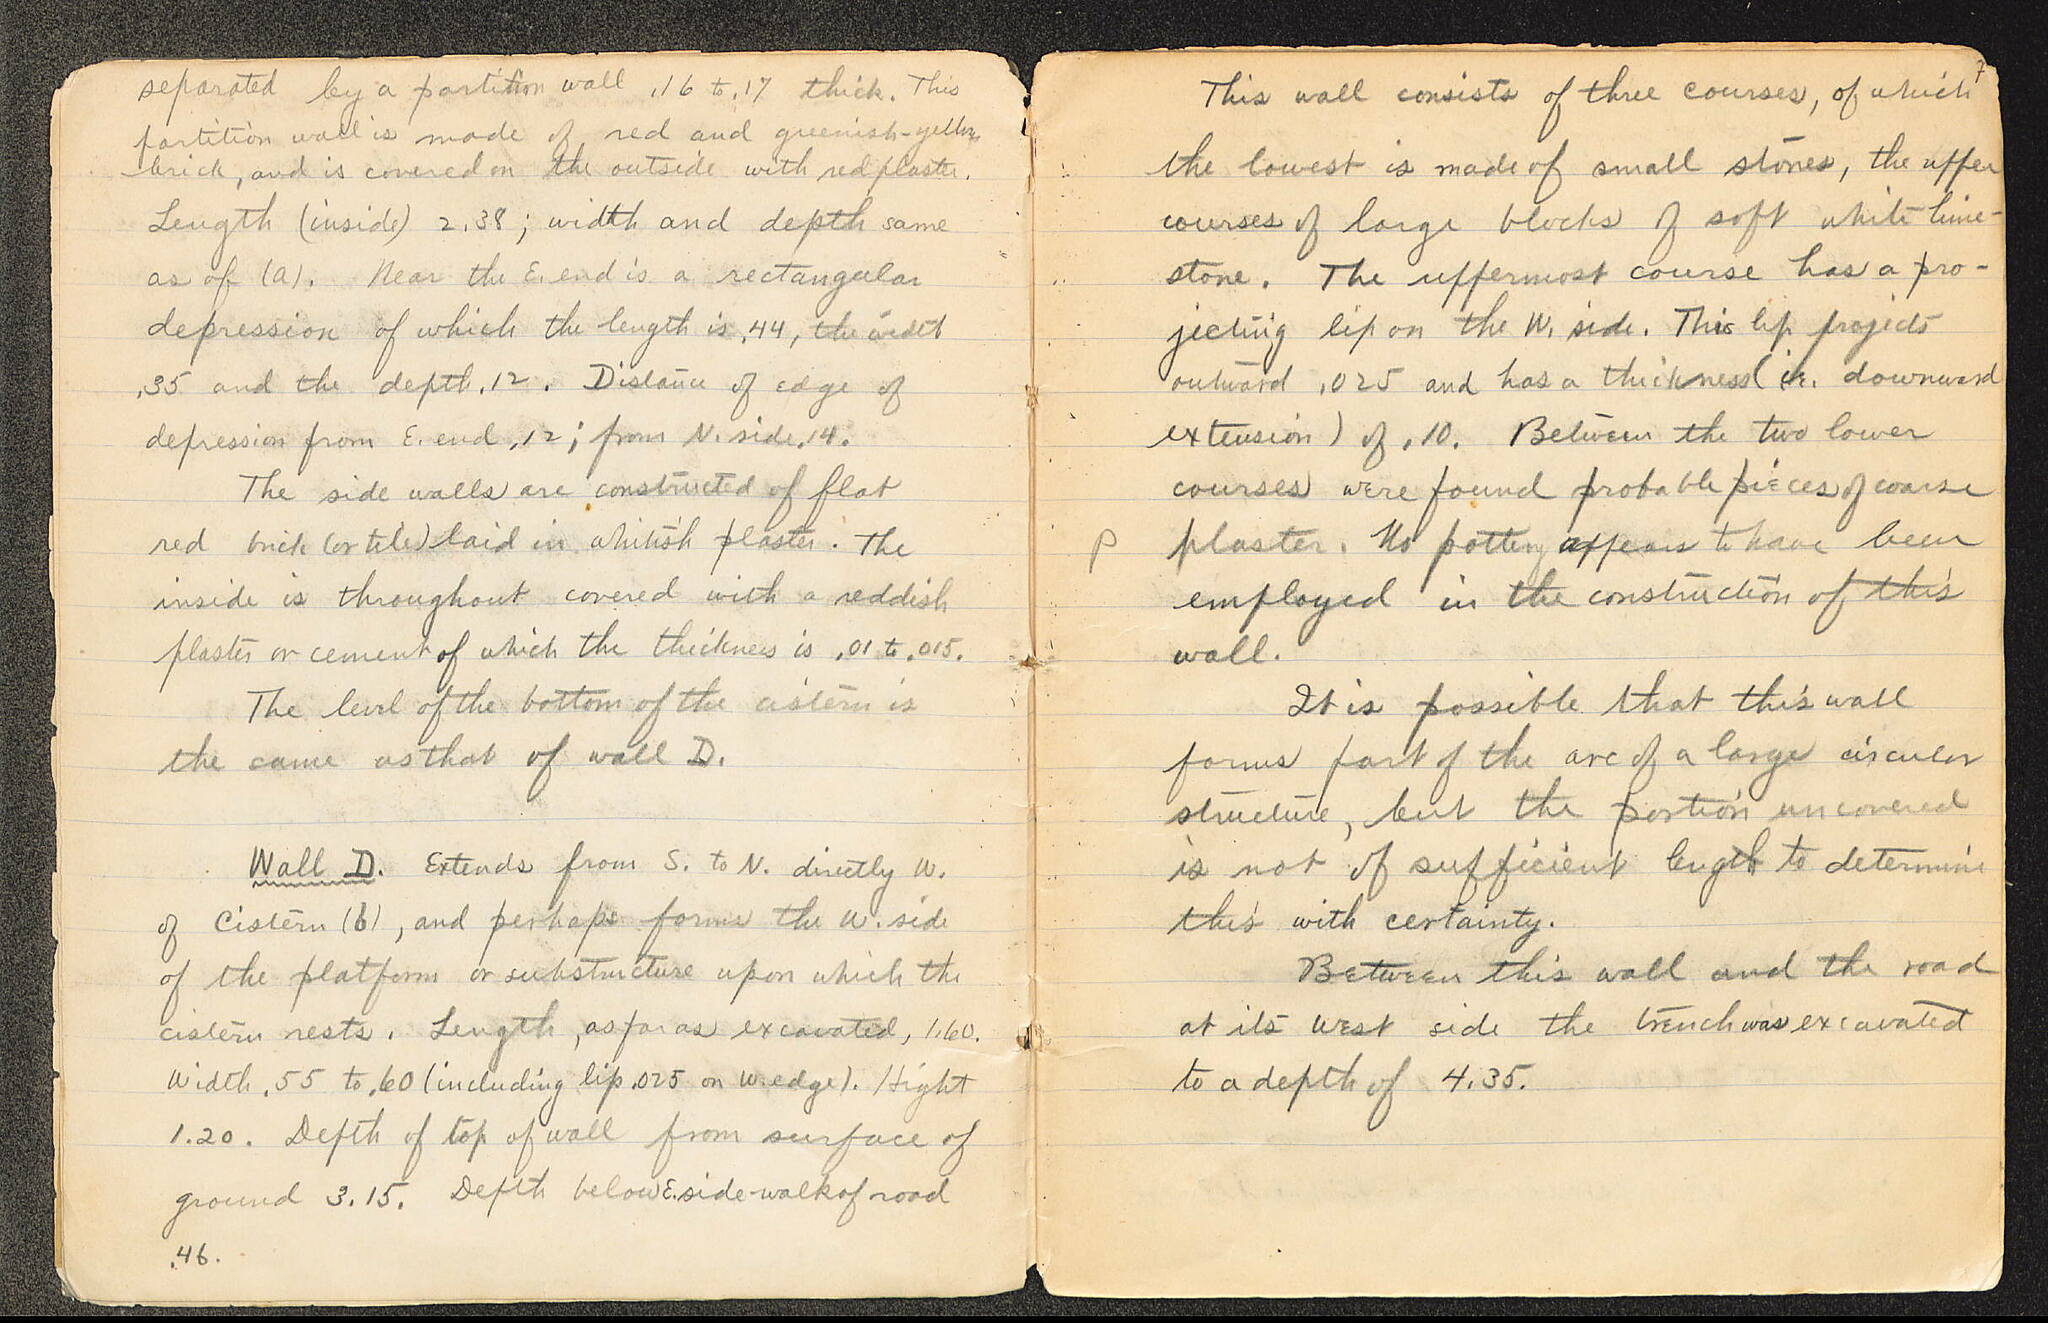 separated by a partition wall .16 to .17 thick. This
partition wall is made of red and greenish-yellow
brick, and is covered on the outside with red plaster.
Length (inside) 2.38; width and depth same
as of (a). Near the E. end is a rectangular
depression of which the length is .44, the width
.35 and the depth .12. Distance of edge of
depression from E. end .12; from N. side .14.
The side walls are constructed of flat
red brick (or tile) laid in whitish plaster. The
inside is throughout covered with a reddish
plaster or cement of which the thickness is .01 to .015.
The level of the bottom of the cistern is
the same as that of wall D.
Wall D. Extends from S. to N. directly W.
of Cistern (b), and perhaps forms the W. side
of the platform or substructure upon which the
cistern rests. Length, as far as excavated, 1.60.
Width .55 to .60 (including lip .025 on W. edge). Hight
1.20. Depth of top of wall from surface of
ground 3.15. Depth below E. side-walk of road
.46.
7
This wall consists of three courses, of which
the lowest is made of small stones, the upper
courses of large blocks of soft white lime-
stone. The uppermost course has a pro-
jecting lip on the W. side. This lip projects
outward .025 and has a thickness (i.e. downward
extension) of .10. Between the two lower
courses were found probable pieces of coarse
P plaster. No pottery appears to have been
employed in the construction of this
wall.
It is possible that this wall
forms part of the arc of a large circular
structure, but the portion uncovered
is not of sufficient length to determine
this with certainty.
Between this wall and the road
at its west side the trench was excavated
to a depth of 4.35.